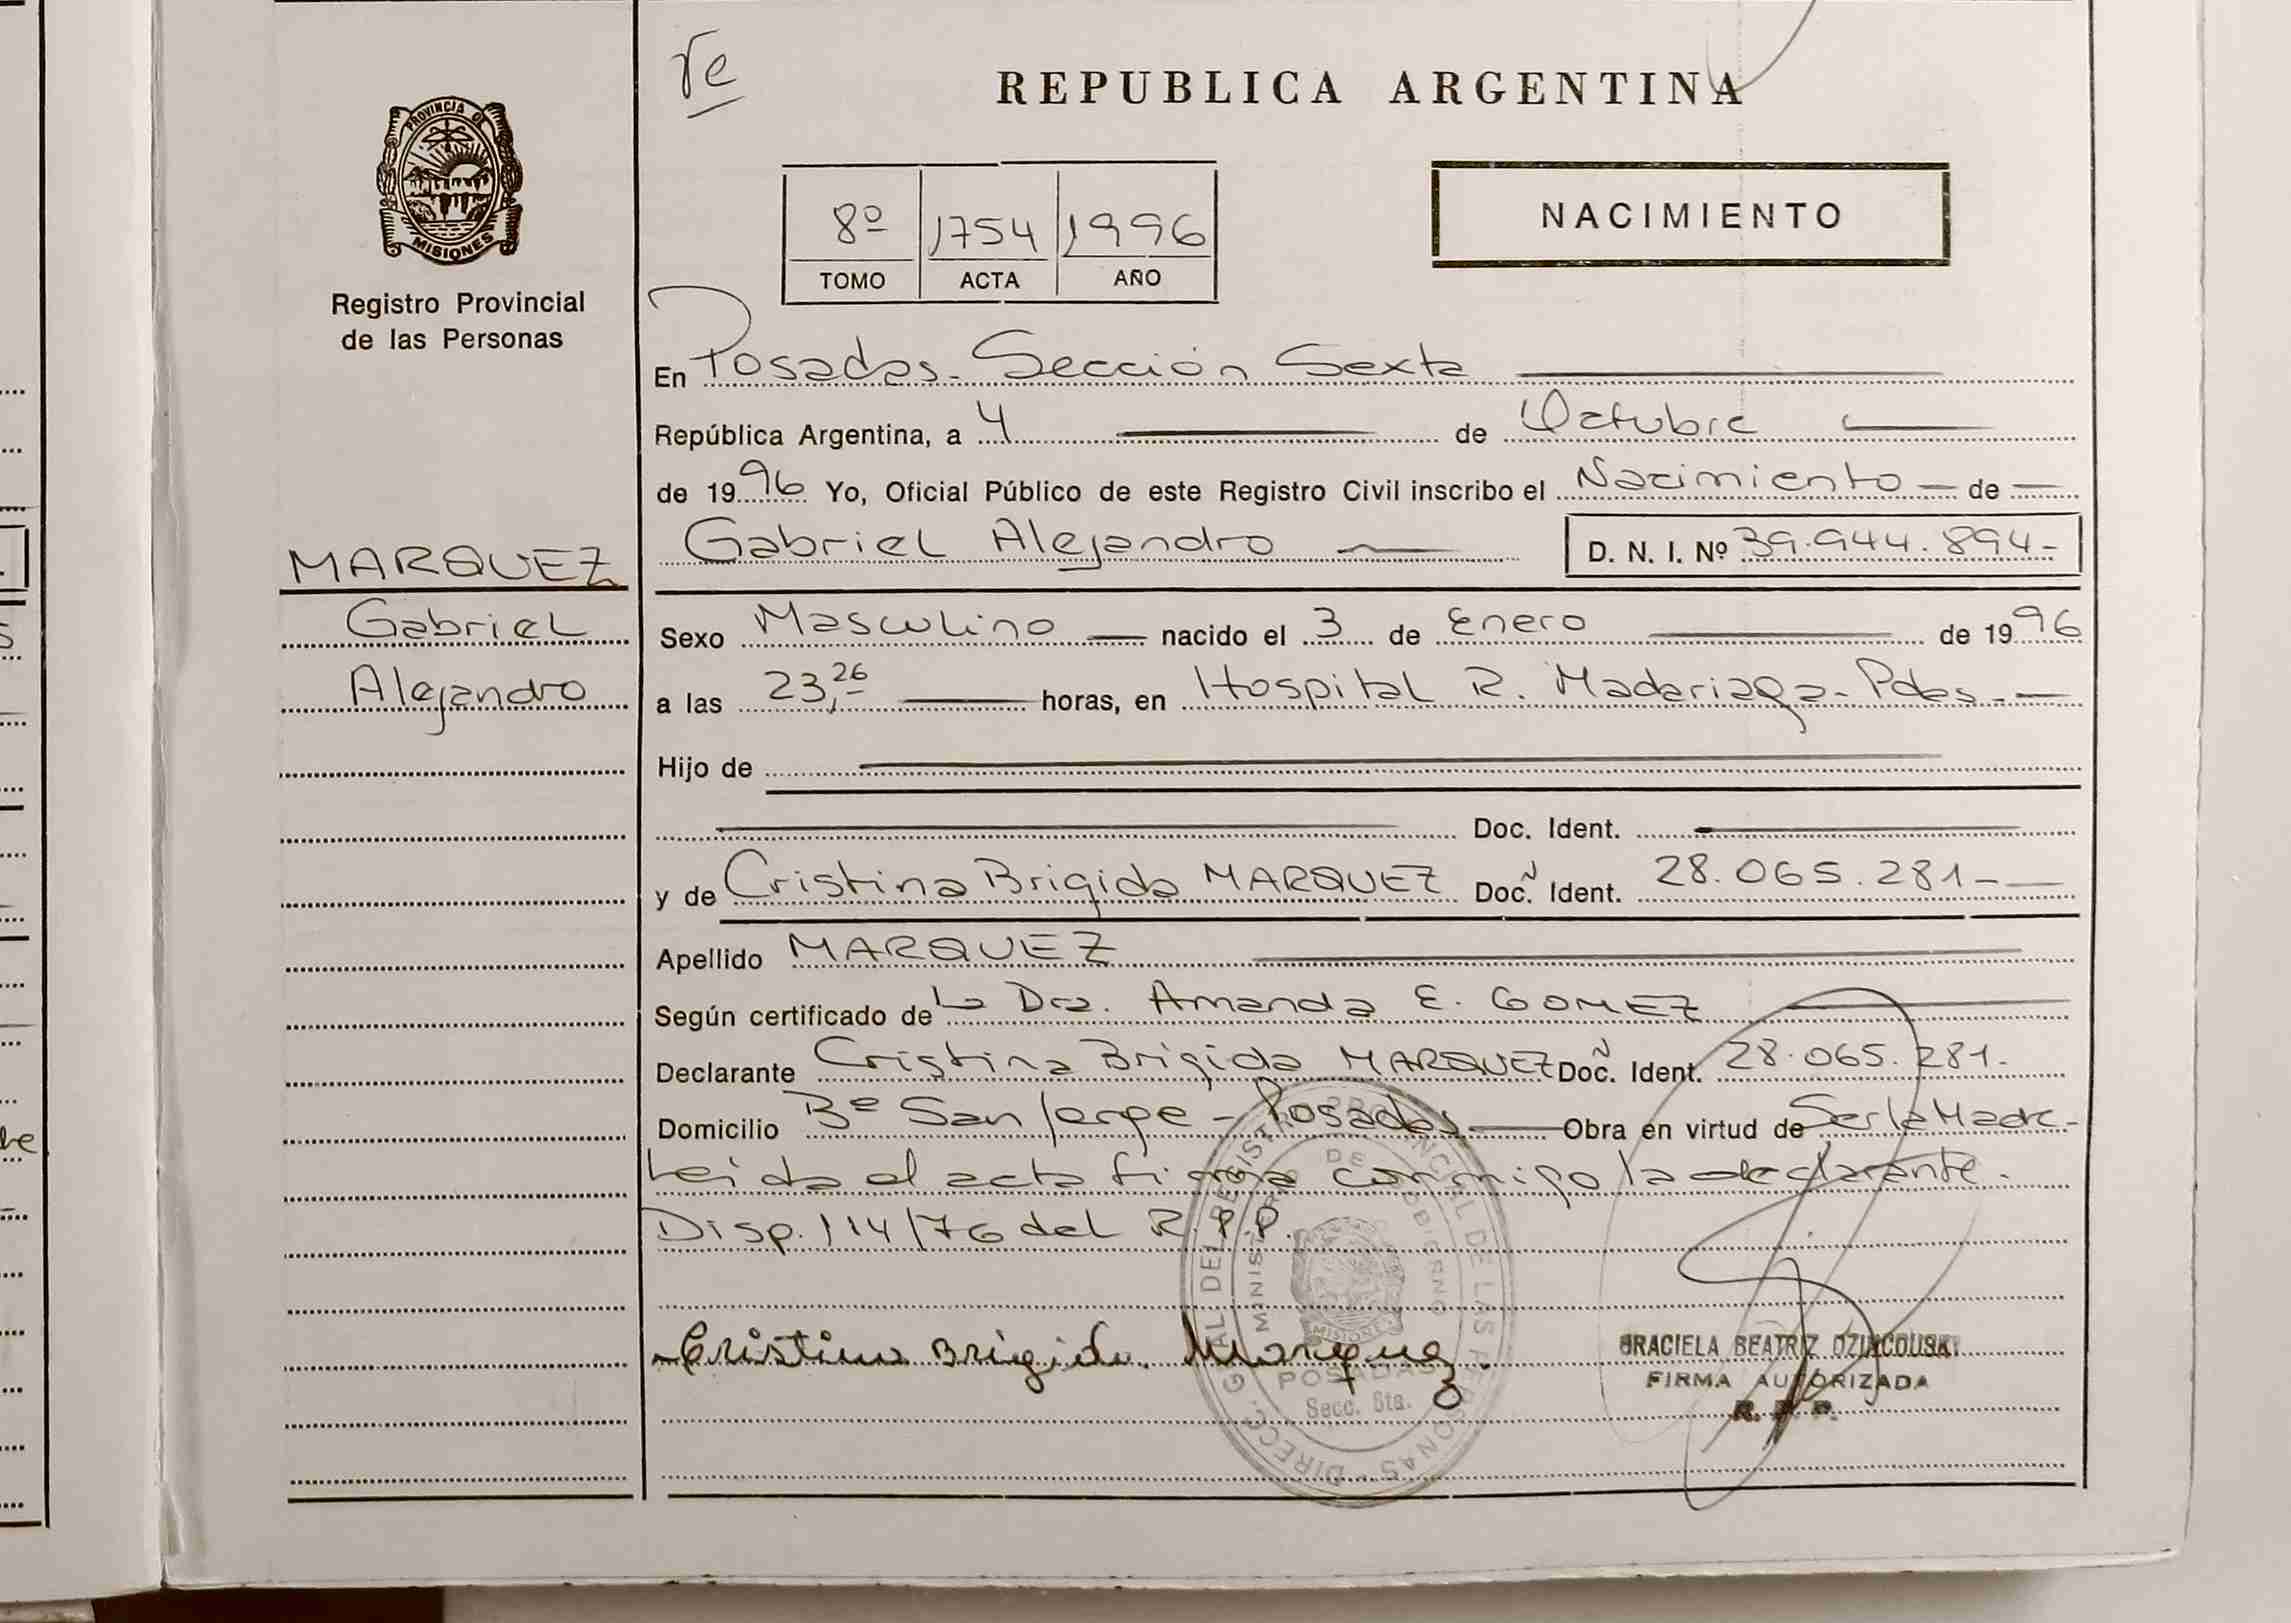 re
REPUBLICA ARGENTINA
PROVINCIA DE
MISIONES
Registro Provincial
de las Personas
8º 1754 1996
TOMO ACTA AÑO
NACIMIENTO
En Posadas. Sección Sexta
República Argentina, a 4 de Octubre
de 1996 Yo, Oficial Público de este Registro Civil inscribo el Nacimiento de
MARQUEZ
Gabriel
Alejandro
Gabriel Alejandro D. N. I. Nº 39.944.894-
Sexo Masculino nacido el 3 de Enero de 1996
a las 23,26 horas, en Hospital R. Madariaga - Pdas.
Hijo de
Doc. Ident.
y de Cristina Brigida MARQUEZ Doc. N Ident. 28.065.281-
Apellido MARQUEZ
Según certificado de la Dra. Amanda E. GOMEZ
Declarante Cristina Brigida MARQUEZ Doc. N Ident. 28.065.281-
Domicilio Bº San Jorge - Posadas Obra en virtud de Ser la Madre-
Leida el acta firma conmigo la declarante.
Disp. 114/76 del R.P.P.
Cristina Brigida Marquez.
DIRECC. GRAL DEL REGISTRO PROVINCIAL DE LAS PERSONAS
MINISTERIO DE GOBIERNO
MISIONES
POSADAS
Secc. 6ta.
GRACIELA BEATRIZ
FIRMA AUTORIZADA
R. P. P.